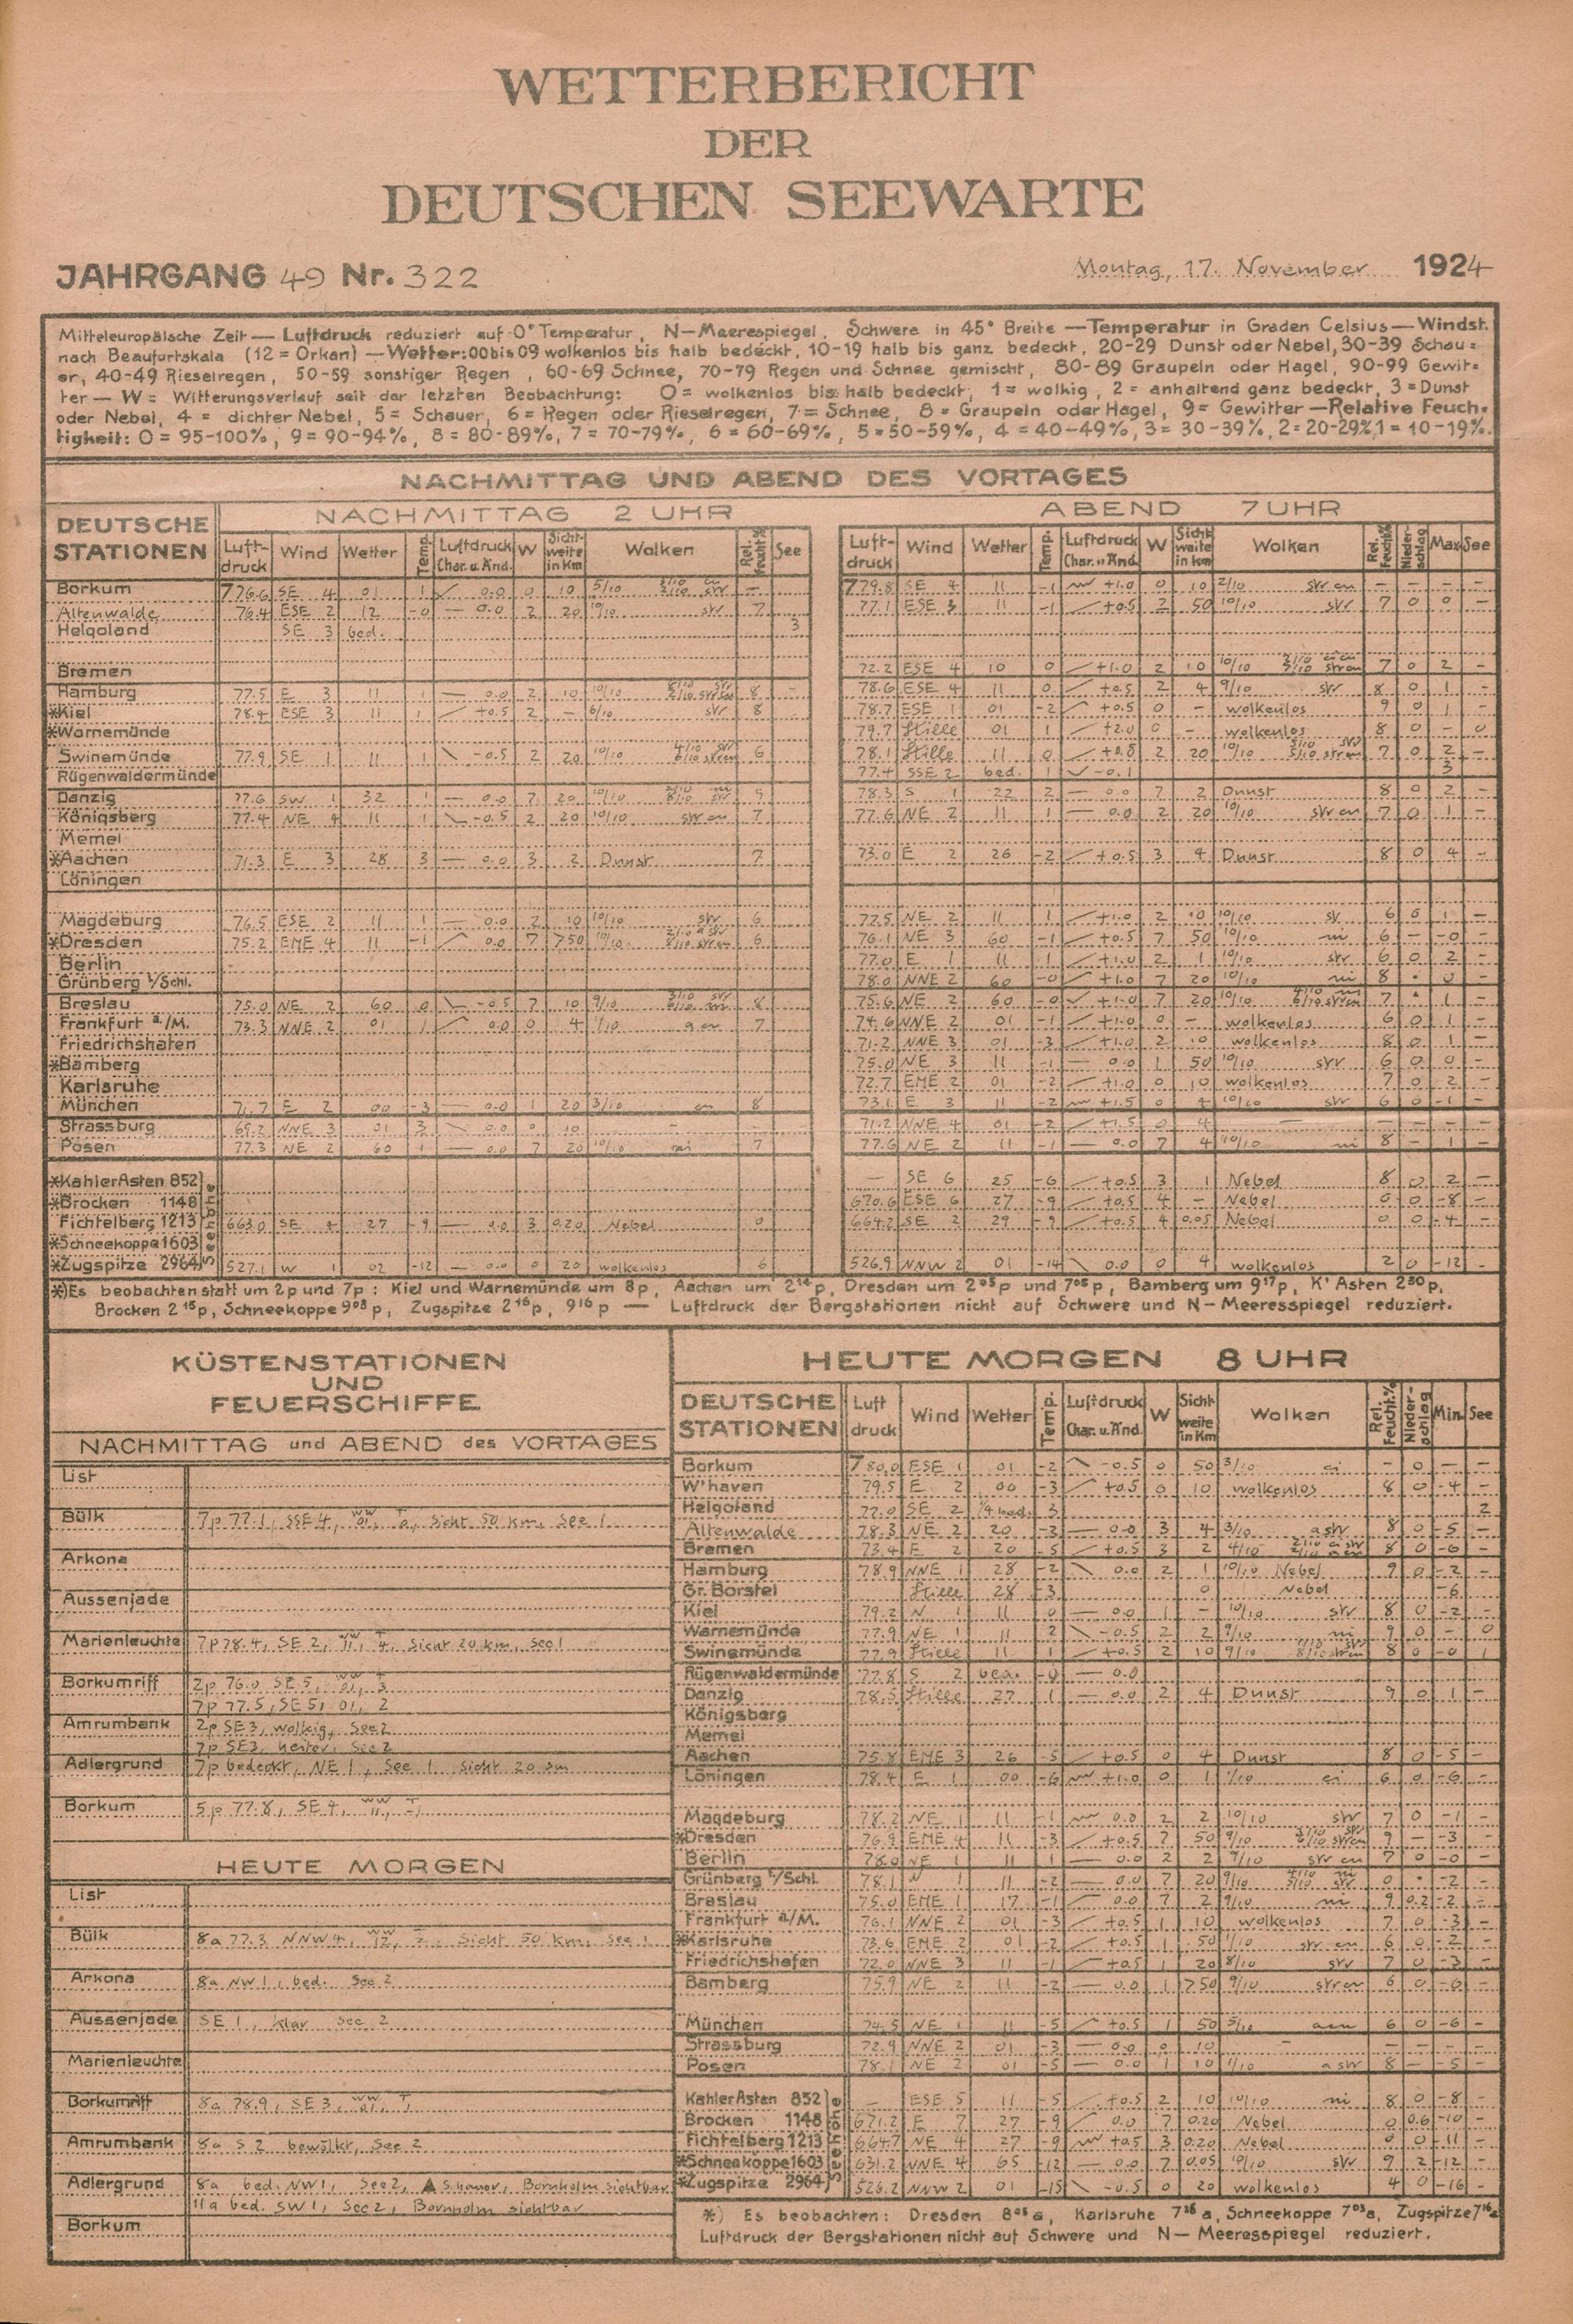 WETTERBERICHT
DER
DEUTSCHEN SEEWARTE
JAHRGANG 49 Nr. 322 Montag, 17. November 1924
Mitteleuropäische Zeit — Luftdruck reduziert auf 0° Temperatur, N—Meerespiegel, Schwere in 45° Breite — Temperatur in Graden Celsius — Windst.
nach Beaufortskala (12 = Orkan) — Wetter: 00 bis 09 wolkenlos bis halb bedeckt, 10-19 halb bis ganz bedeckt, 20-29 Dunst oder Nebel, 30-39 Schau=
er, 40-49 Rieselregen, 50-59 sonstiger Regen, 60-69 Schnee, 70-79 Regen und Schnee gemischt, 80-89 Graupeln oder Hagel, 90-99 Gewit=
ter — W = Witterungsverlauf seit der letzten Beobachtung: 0 = wolkenlos bis halb bedeckt, 1 = wolkig, 2 = anhaltend ganz bedeckt, 3 = Dunst
oder Nebel, 4 = dichter Nebel, 5 = Schauer, 6 = Regen oder Rieselregen, 7 = Schnee, 8 = Graupeln oder Hagel, 9 = Gewitter — Relative Feuch-
tigkeit: 0 = 95-100%, 9 = 90-94%, 8 = 80-89%, 7 = 70-79%, 6 = 60-69%, 5 = 50-59%, 4 = 40-49%, 3 = 30-39%, 2 = 20-29%, 1 = 10-19%.
NACHMITTAG UND ABEND DES VORTAGES
DEUTSCHE STATIONEN
NACHMITTAG 2 UHR
Luft-druck Wind Wetter Temp. Luftdruck Char. u. Änd. W Sicht-weite in Km Wolken Rel. Feucht.% See
ABEND 7 UHR
Luft-druck Wind Wetter Temp. Luftdruck Char. u. Änd. W Sicht weite in Km Wolken Rel. Feucht.% Nieder-schlag Max See
Borkum 776.6 SE 4 01 1 0.0 0 10 5/10 779.8 SE 4 11 -1 +1.0 0 10 2/10 str cu
Altenwalde 76.4 ESE 2 12 -0 0.0 2 20 10/10 str 7 77.1 ESE 3 11 -1 +0.5 2 50 10/10 str 7 0 0 -
Helgoland SE 3 bed. 3
Bremen 72.2 ESE 4 10 0 +1.0 2 10 10/10 7 0 2 -
Hamburg 77.5 E 3 11 1 0.0 2 10 10/10 8 - 78.6 ESE 4 11 0 +0.5 2 4 9/10 str 8 0 1 -
*Kiel 78.4 ESE 3 11 1 +0.5 2 - 6/10 str 8 78.7 ESE 1 01 -2 +0.5 0 - wolkenlos 9 0 1 -
*Warnemünde 79.7 Stille 01 1 +2.0 0 - wolkenlos 8 0 - 0
Swinemünde 77.9 SE 1 11 1 -0.5 2 20 10/10 6 78.1 Stille 11 0 2 20 10/10 7 0 2 -
Rügenwaldermünde 77.4 SSE 2 bed. 1 -0.1 3
Danzig 77.6 SW 1 32 1 0.0 7 20 10/10 9 78.3 S 1 22 2 0.0 7 2 Dunst 8 0 2 -
Königsberg 77.4 NE 4 11 1 -0.5 2 20 10/10 str cu 7 77.6 NE 2 11 1 0.0 2 20 10/10 str cu 7 0 1 -
Memel
*Aachen 71.3 E 3 28 3 0.0 3 2 Dunst 7 73.0 E 2 26 -2 +0.5 3 4 Dunst 8 0 4 -
Löningen
Magdeburg 76.5 ESE 2 11 1 0.0 2 10 10/10 str 6 72.5 NE 2 11 1 +1.0 2 10 10/10 6 0 1 -
*Dresden 75.2 ENE 4 11 -1 0.0 7 >50 10/10 6 76.1 NE 3 60 -1 +0.5 7 50 10/10 ni 6 - -0 -
Berlin 77.0 E 1 11 1 +1.0 2 1 10/10 str 6 0 2 -
Grünberg i/Schl. 78.0 NNE 2 60 -0 +1.0 7 20 10/10 ni 8 • 0 -
Breslau 75.0 NE 2 60 0 -0.5 7 10 9/10 8 75.6 NE 2 60 -0 +1.0 7 20 10/10 7 • 1 -
Frankfurt a/M. 73.3 NNE 2 01 1 0.0 0 4 1/10 a cu 7 74.6 NNE 2 01 -1 +1.0 0 - wolkenlos 6 0 1 -
Friedrichshafen 71.2 NNE 3 01 -3 +1.0 2 10 wolkenlos 8 0 1 -
*Bamberg 75.0 NE 3 11 -1 0.0 1 50 10/10 str 6 0 0 -
Karlsruhe 72.7 ENE 2 01 -2 +1.0 0 10 wolkenlos 7 0 2 -
München 71.7 E 2 00 -3 0.0 1 20 3/10 cu 8 73.1 E 3 11 -2 +1.5 0 4 10/10 str 6 0 -1 -
Strassburg 69.2 NNE 3 01 3 0.0 0 10 - 71.2 NNE 4 01 -2 +1.5 0 4
Posen 77.3 NE 2 60 1 0.0 7 20 10/10 ni 7 77.6 NE 2 11 -1 0.0 7 4 10/10 ni 8 - 1 -
Seehöhe
*Kahler Asten 852 - SE 6 25 -6 +0.5 3 1 Nebel 8 0 2 -
*Brocken 1148 670.6 ESE 6 27 -9 +0.5 4 - Nebel 0 0 -8 -
Fichtelberg 1213 663.0 SE 4 27 -9 0.0 3 0.20 Nebel 0 664.2 SE 2 29 -9 +0.5 4 0.05 Nebel 0 0 -4 -
*Schneekoppe 1603
*Zugspitze 2964 527.1 W 1 02 -12 0.0 0 20 wolkenlos 6 526.9 NNW 2 01 -14 0.0 0 4 wolkenlos 2 0 -12 -
*) Es beobachten statt um 2p und 7p: Kiel und Warnemünde um 8p, Aachen um 2¹⁴p, Dresden um 2⁰⁵p und 7⁰⁵p, Bamberg um 9¹⁷p, K' Asten 2³⁰p,
Brocken 2¹⁵p, Schneekoppe 9⁰³p, Zugspitze 2¹⁶p, 9¹⁶p — Luftdruck der Bergstationen nicht auf Schwere und N—Meeresspiegel reduziert.
KÜSTENSTATIONEN
UND
FEUERSCHIFFE
NACHMITTAG und ABEND des VORTAGES
List
Bülk 7p 77.1, SSE 4, ww 01, T 0, Sicht 50 km, See 1
Arkona
Aussenjade
Marienleuchte 7p 78.4, SE 2, ww 11, T 4, Sicht 20 km, See 1
Borkumriff 2p 76.0 SE 5, ww 01, T 3
7p 77.5, SE 5, 01, 2
Amrumbank 2p SE 3, wolkig, See 2
7p SE 3, heiter, See 2
Adlergrund 7p bedeckt, NE 1, See 1 Sicht 20 sm
Borkum 5p 77.8, SE 4, ww 11, T
HEUTE MORGEN
List
Bülk 8a 77.3 NNW 4, ww 12, Sicht 50 km, See 1
Arkona 8a NW 1, bed. See 2
Aussenjade SE 1, klar See 2
Marienleuchte
Borkumriff 8a 78.9, SE 3, ww 01, T
Amrumbank 8a S 2 bewölkt, See 2
Adlergrund 8a bed. NW 1, See 2, Schauer, Bornholm sichtbar
11a bed. SW 1, See 2, Bornholm sichtbar
Borkum
HEUTE MORGEN 8 UHR
DEUTSCHE STATIONEN Luft druck Wind Wetter Temp. Luftdruck Char. u. Änd. W Sicht weite in Km Wolken Rel. Feucht.% Nieder-schlag Min. See
Borkum 780.0 ESE 1 01 -2 -0.5 0 50 3/10 ci - 0 - -
W'haven 79.5 E 2 00 -3 +0.5 0 10 wolkenlos 8 0 -4 -
Helgoland 72.0 SE 2 1/4 bed. 3 2
Altenwalde 78.3 NE 2 20 -3 0.0 3 4 3/10 a str 8 0 -5 -
Bremen 73.4 E 2 20 -5 +0.5 3 2 4/10 8 0 -6 -
Hamburg 78.9 NNE 1 28 -2 0.0 2 1 10/10 Nebel 9 0 -2 -
Gr. Borstel Stille 28 -3 0 Nebel -6
Kiel 79.2 N 1 11 0 0.0 1 - 10/10 str 8 0 -2 -
Warnemünde 77.9 NE 1 11 2 -0.5 2 2 9/10 ni 9 0 - 0
Swinemünde 77.9 Stille 11 1 +0.5 2 10 9/10 8 0 -0 1
Rügenwaldermünde 77.8 S 2 bed. -0 0.0
Danzig 78.5 Stille 27 1 0.0 2 4 Dunst 9 0 1 -
Königsberg
Memel
Aachen 75.8 ENE 3 26 -5 +0.5 0 4 Dunst 8 0 -5 -
Löningen 78.4 E 1 00 -6 +1.0 0 1 1/10 ci 6 0 -6 -
Magdeburg 78.2 NE 1 11 -1 0.0 2 2 10/10 str 7 0 -1 -
*Dresden 76.9 ENE 4 11 -3 +0.5 7 50 9/10 9 - -3 -
Berlin 78.0 NE 1 11 1 0.0 2 2 9/10 str cu 7 0 -0 -
Grünberg i/Schl. 78.1 N 1 11 -2 0.0 7 20 9/10 0 • -2 -
Breslau 75.0 ENE 1 17 -1 0.0 7 2 9/10 ni 9 0.2 -2 -
Frankfurt a/M. 76.1 NNE 2 01 -3 +0.5 1 10 wolkenlos 7 0 -3 -
*Karlsruhe 73.6 ENE 2 01 -2 +0.5 1 50 1/10 str cu 6 0 -2 -
Friedrichshafen 72.0 NNE 3 11 -1 +0.5 1 20 8/10 str 7 0 -3 -
Bamberg 75.9 NE 2 11 -2 0.0 1 >50 9/10 str cu 6 0 -6 -
München 74.5 NE 1 11 -5 +0.5 1 50 5/10 acu 6 0 -6 -
Strassburg 72.9 NNE 2 01 -3 0.0 0 10 -
Posen 78.1 NE 2 01 -5 0.0 1 10 1/10 a str 8 - -5 -
Seehöhe
Kahler Asten 852 - ESE 5 11 -5 +0.5 2 10 10/10 ni 8 0 -8 -
Brocken 1148 671.2 E 7 27 -9 0.0 7 0.20 Nebel 0 0.6 -10 -
Fichtelberg 1213 664.7 NE 4 27 -9 +0.5 3 0.20 Nebel 0 0 -11 -
*Schneekoppe 1603 631.2 NNE 4 65 -12 0.0 7 0.05 10/10 str 9 2 -12 -
*Zugspitze 2964 526.2 NNW 2 01 -15 -0.5 0 20 wolkenlos 4 0 -16 -
*) Es beobachten: Dresden 8⁰⁵a, Karlsruhe 7²⁶a, Schneekoppe 7⁰³a, Zugspitze 7¹⁶a
Luftdruck der Bergstationen nicht auf Schwere und N—Meeresspiegel reduziert.